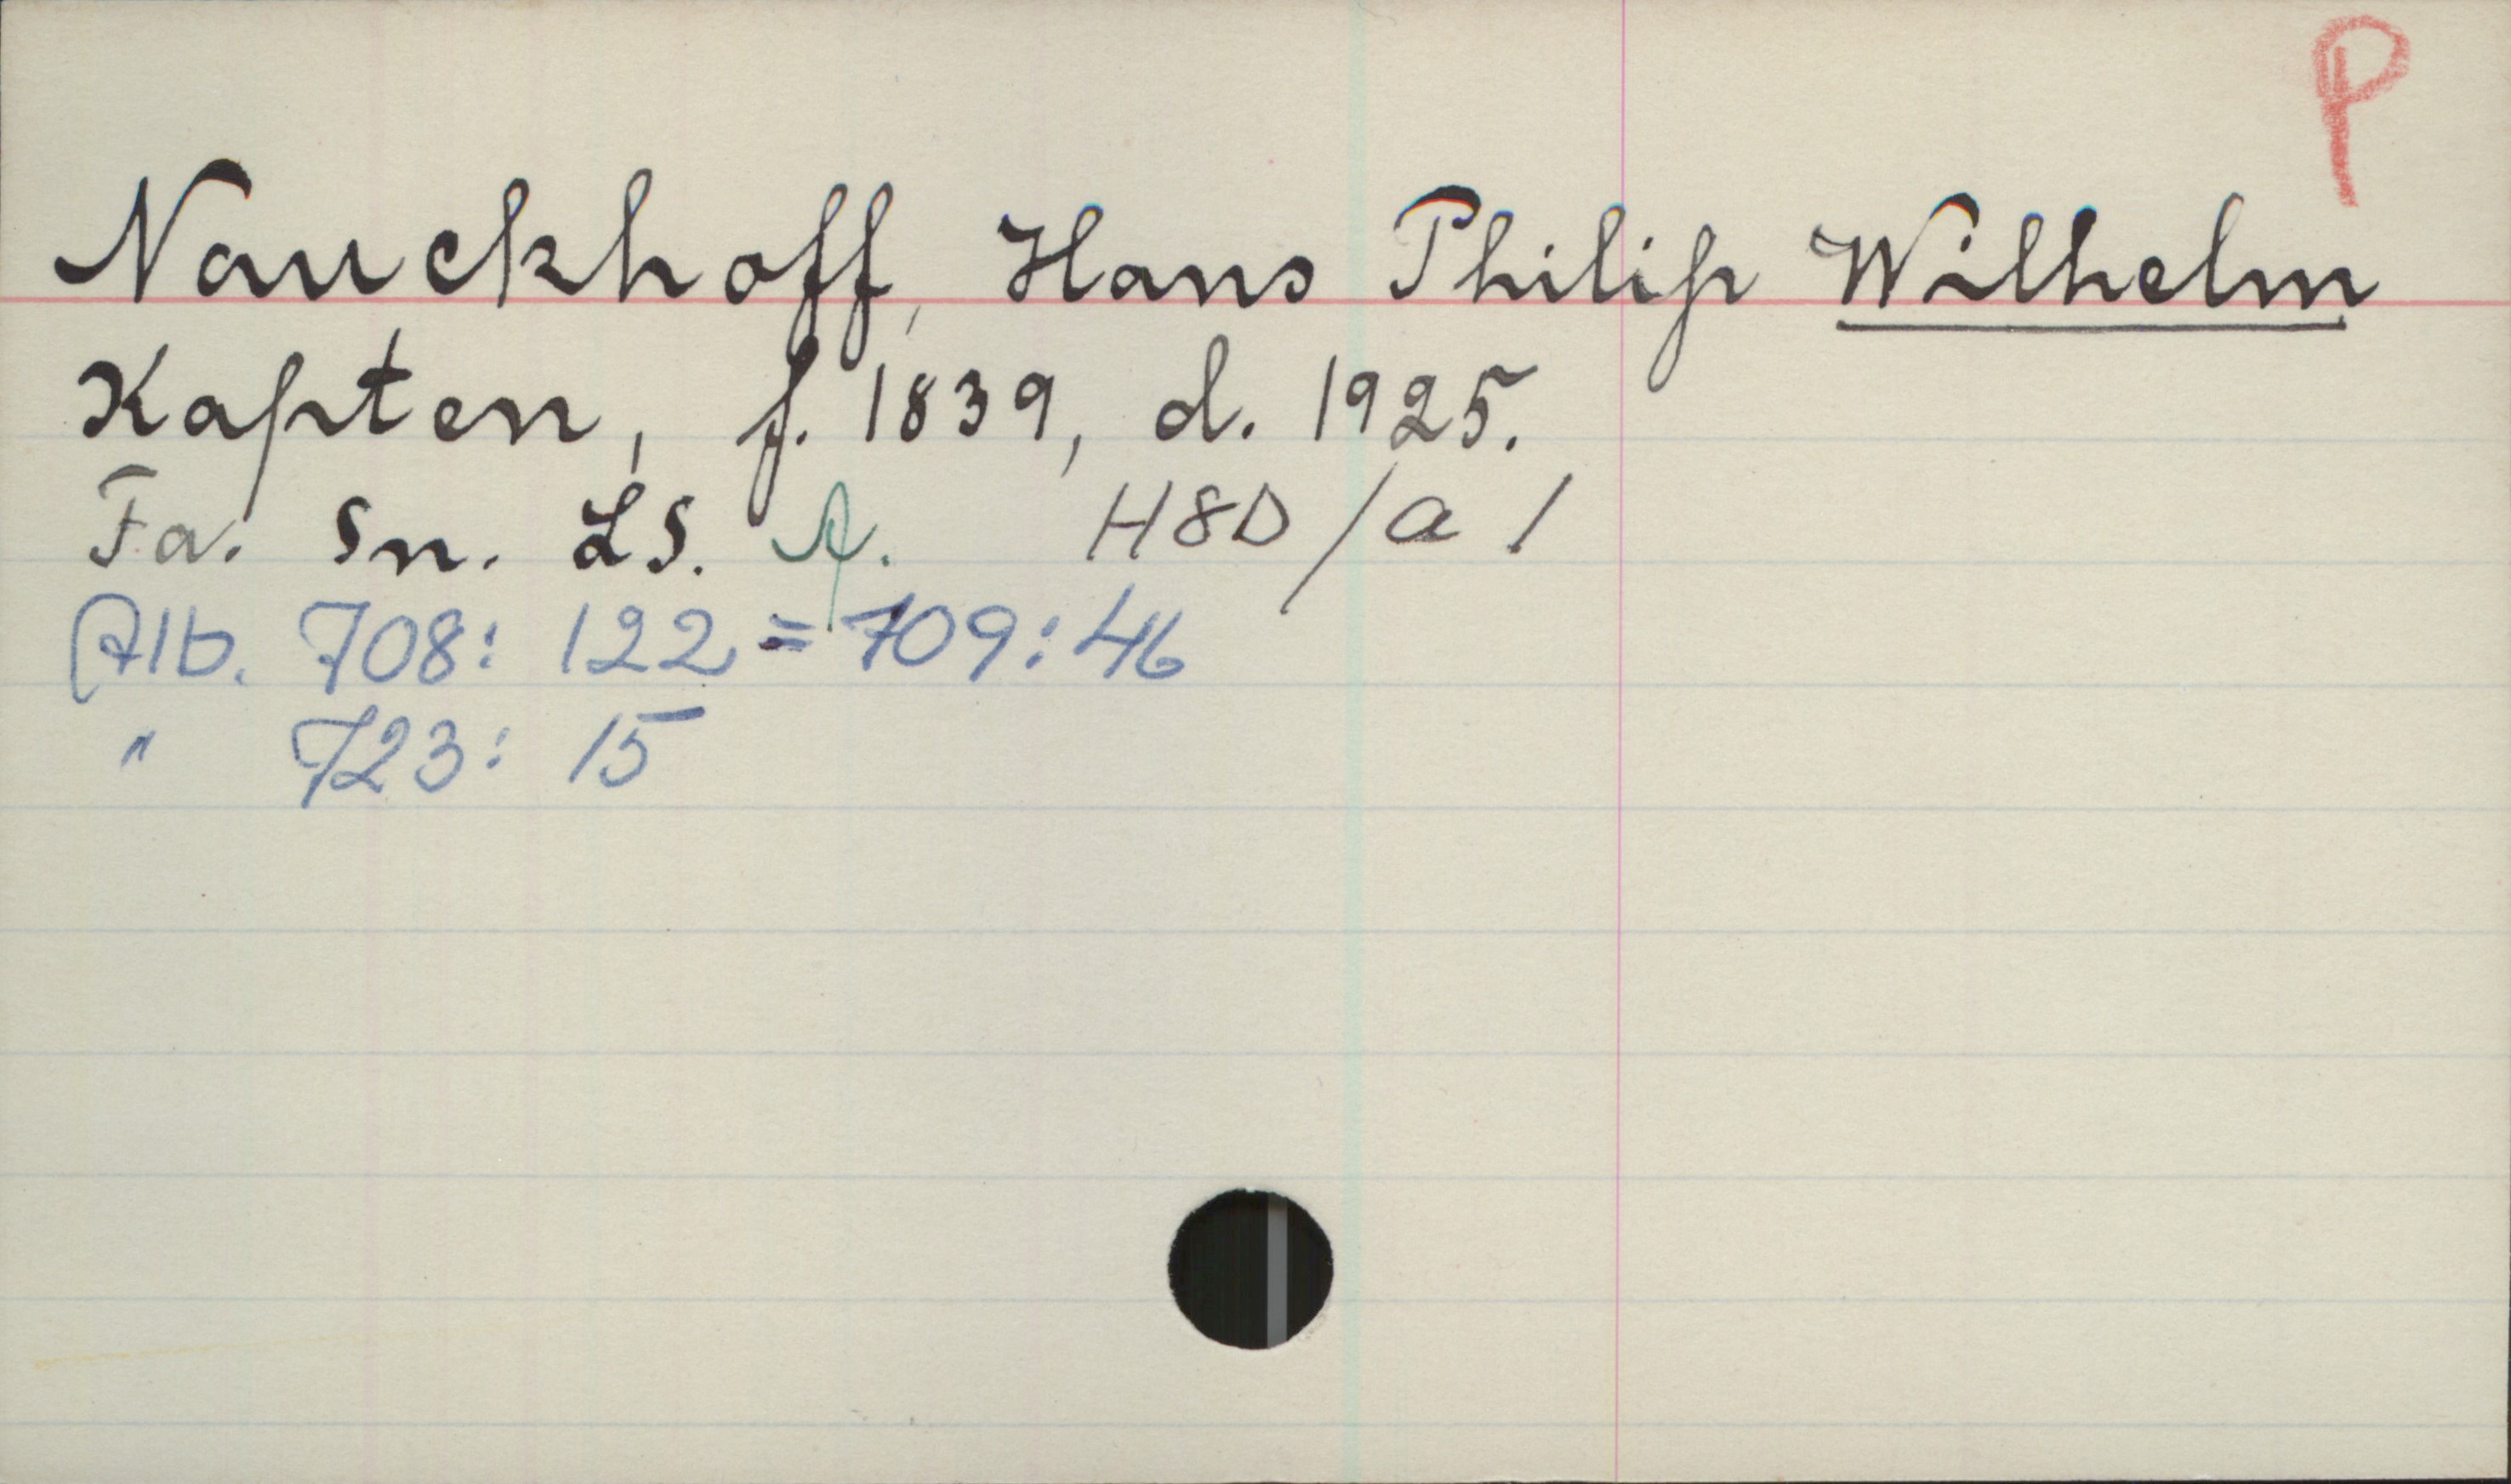 P
Nauckhoff, Hans Philip Wilhelm
Kapten, f. 1839, d. 1925.
Fa. Sn. LS. A. H8D/a 1
Alb. 708: 122 = 709: 46
" 723: 15